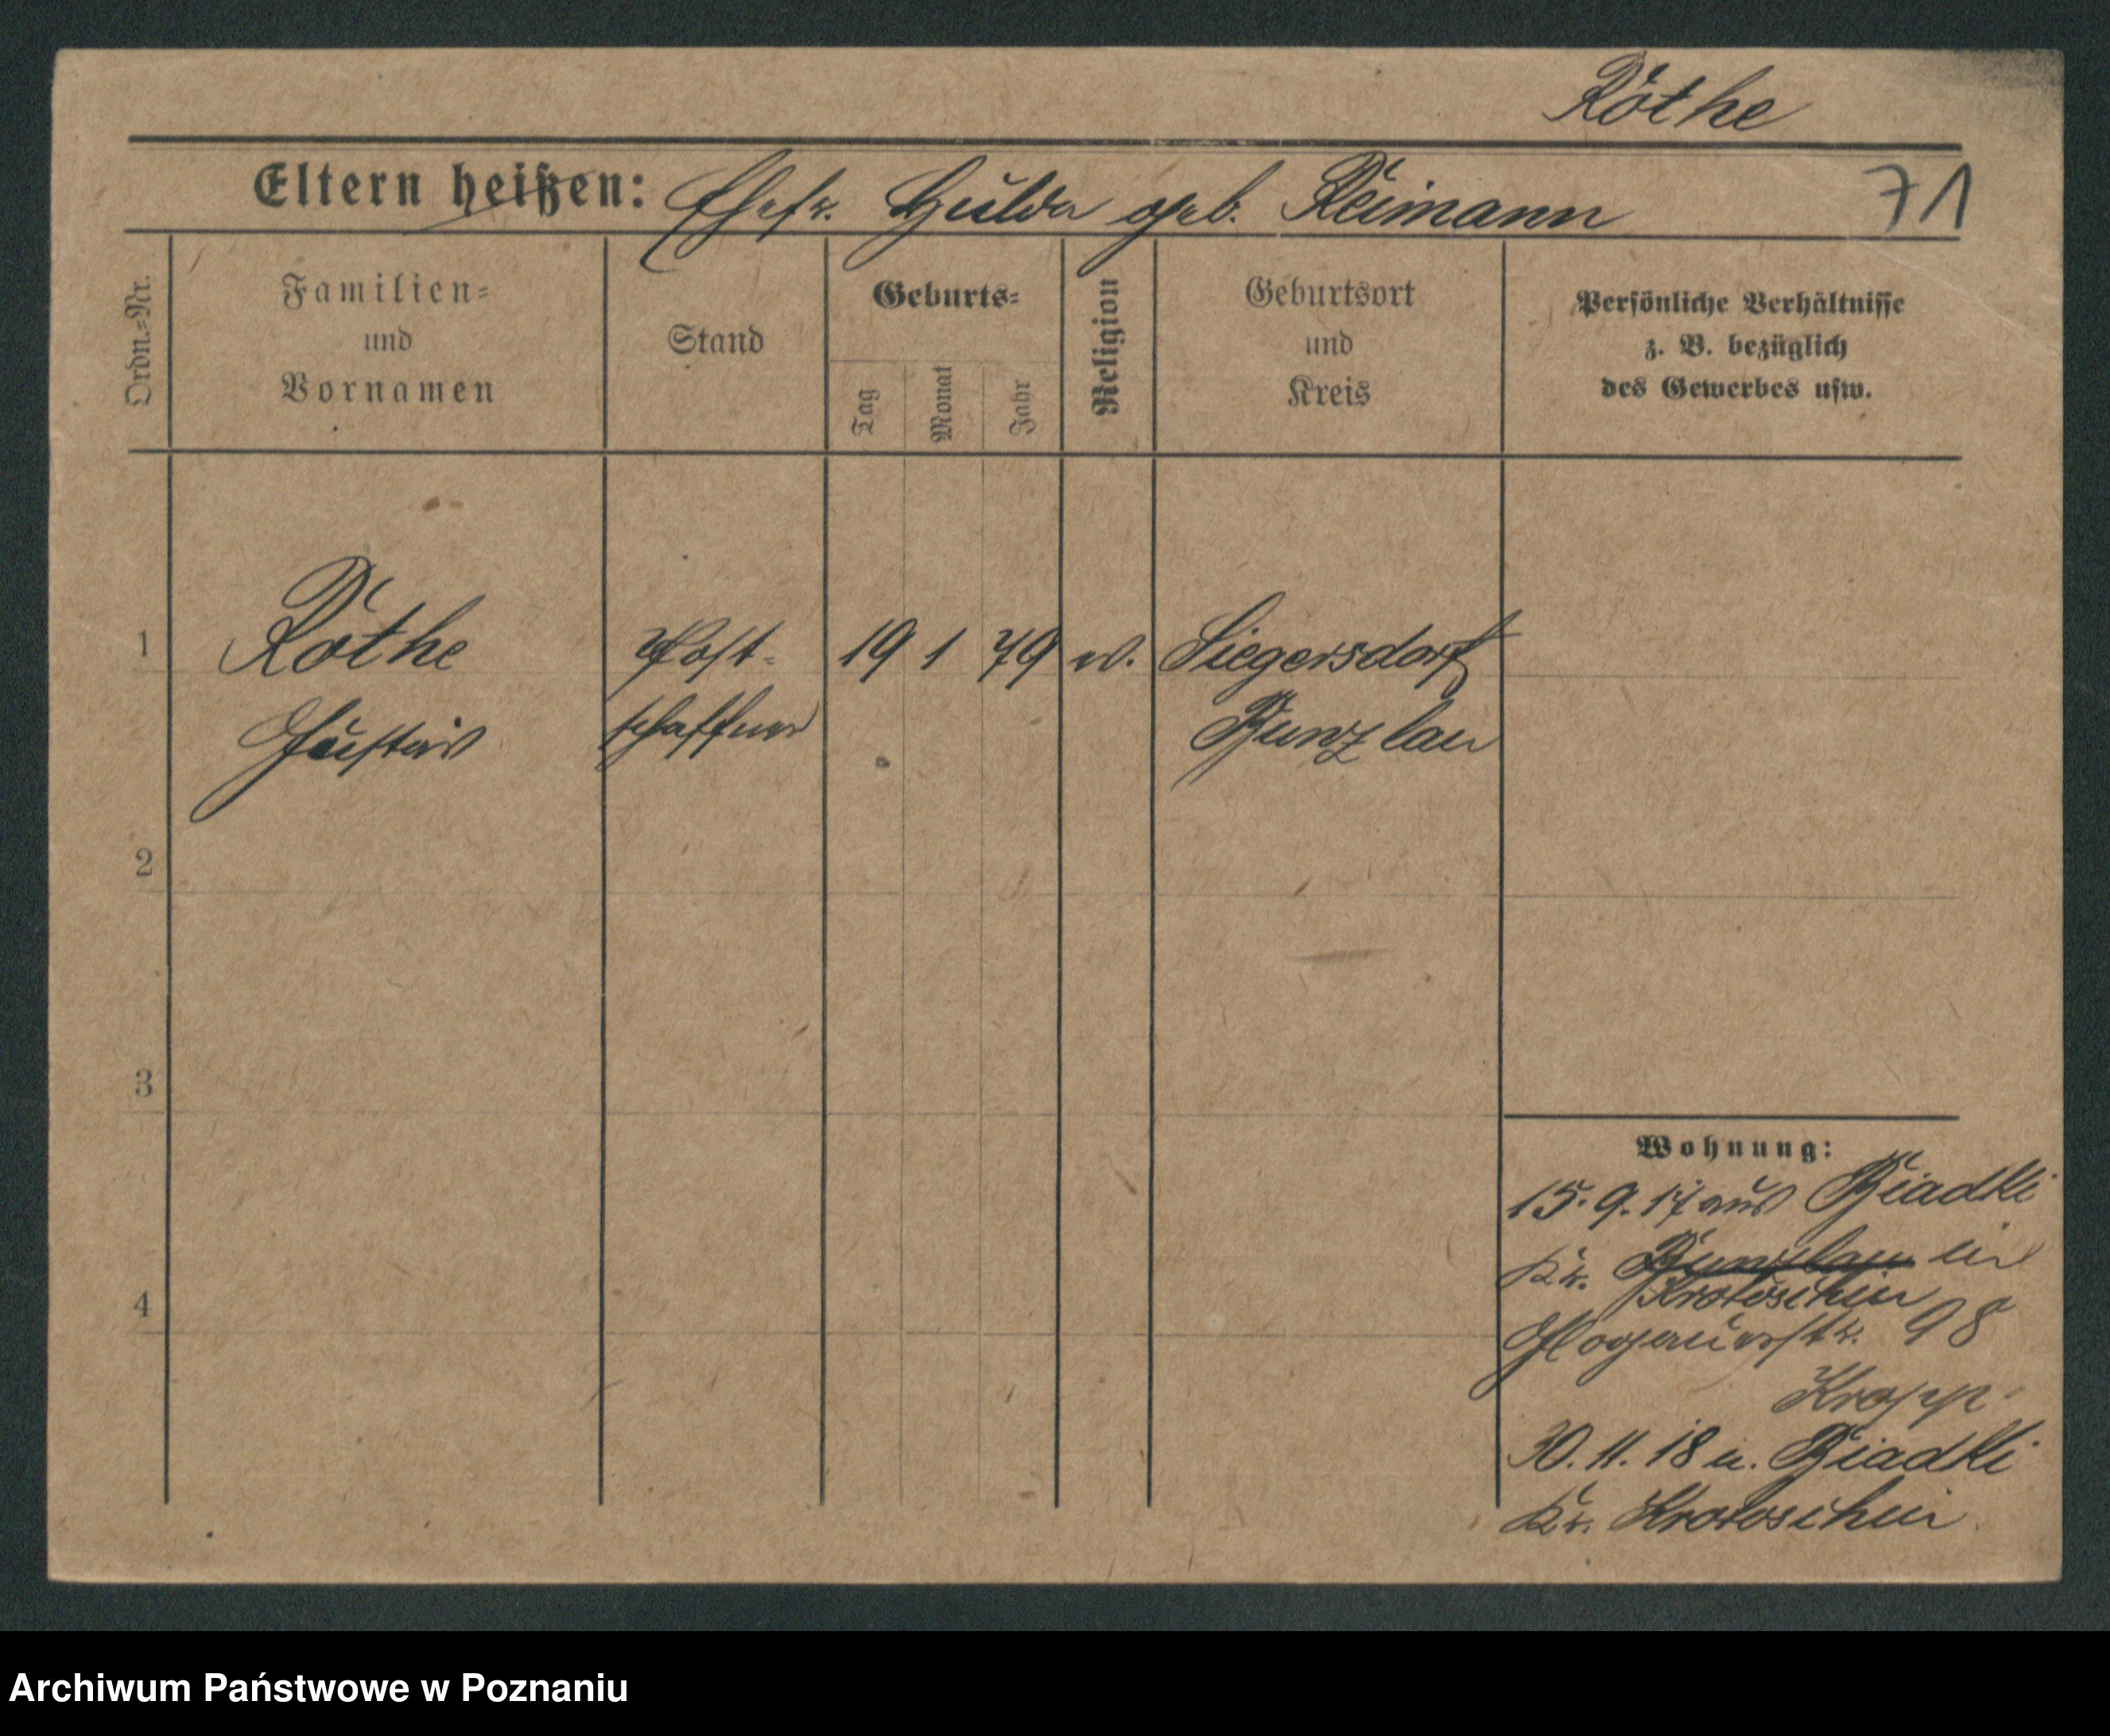 Röthe
Eltern heißen: Ehefr. Hulda geb. Reimann
71
Ordn.=Nr.
Familien=
und
Vornamen
Stand
Geburts=
Tag
Monat
Jahr
Religion
Geburtsort
und
Kreis
Persönliche Verhältnisse
z. B. bezüglich
des Gewerbes usw.
1 Röthe Post- 19 1 79 ev. Siegersdorf
Gustav schaffner Bunzlau
2
3
4
Wohnung:
15.9.17 aus Biadki
Kr. Bunzlau in
Krotoschin
Glogauerstr. 98
30.11.18 n. Biadki
Kr. Krotoschin
Archiwum Państwowe w Poznaniu